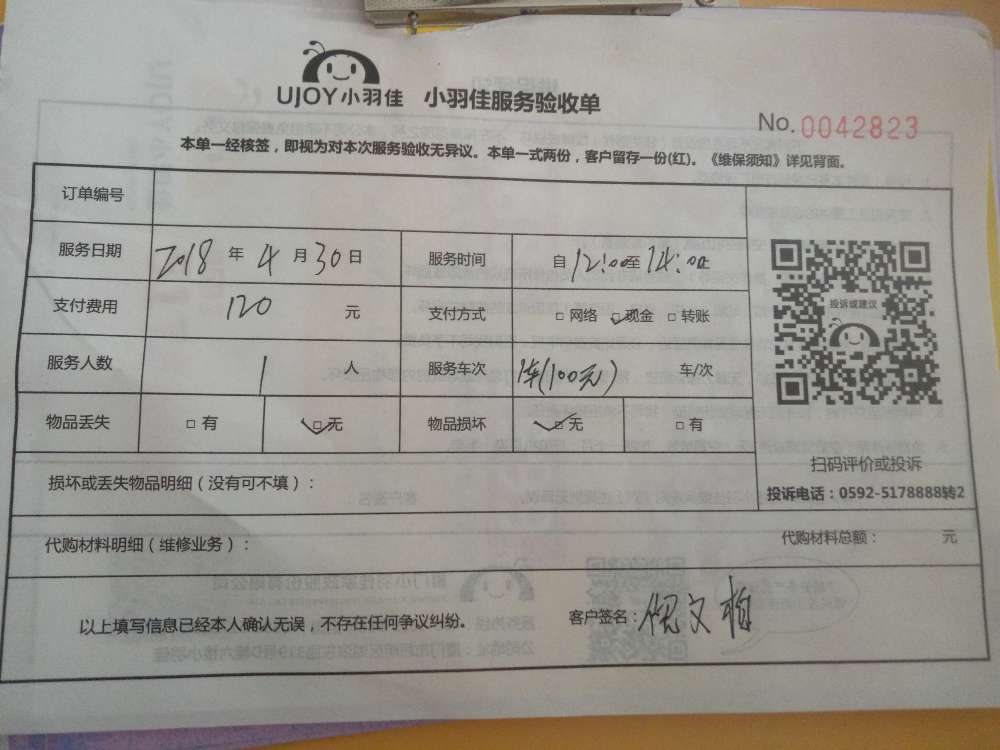 UJOY小羽佳 小羽佳服务验收单
No.0042823
本单一经核签，即视为对本次服务验收无异议。本单一式两份，客户留存一份(红)。《维保须知》详见背面。
订单编号
服务日期 2018 年 4 月 30 日 服务时间 自 12:00 至 14:00
支付费用 120 元 支付方式 □ 网络 ☑ 现金 □ 转账
投诉或建议
服务人数 1 人 服务车次 1车(100元) 车/次
物品丢失 □ 有 ☑ 无 物品损坏 ☑ 无 □ 有
扫码评价或投诉
投诉电话：0592-5178888转2
损坏或丢失物品明细（没有可不填）：
代购材料明细（维修业务）： 代购材料总额： 元
以上填写信息已经本人确认无误，不存在任何争议纠纷。 客户签名：倪文柏